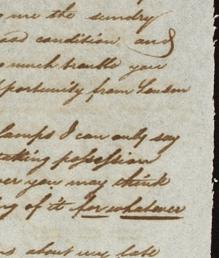 me the sundry
condition and
much trouble your
opportunity from London
Lamps I can only say
taking possession
you may think
of it for whatever
about my late